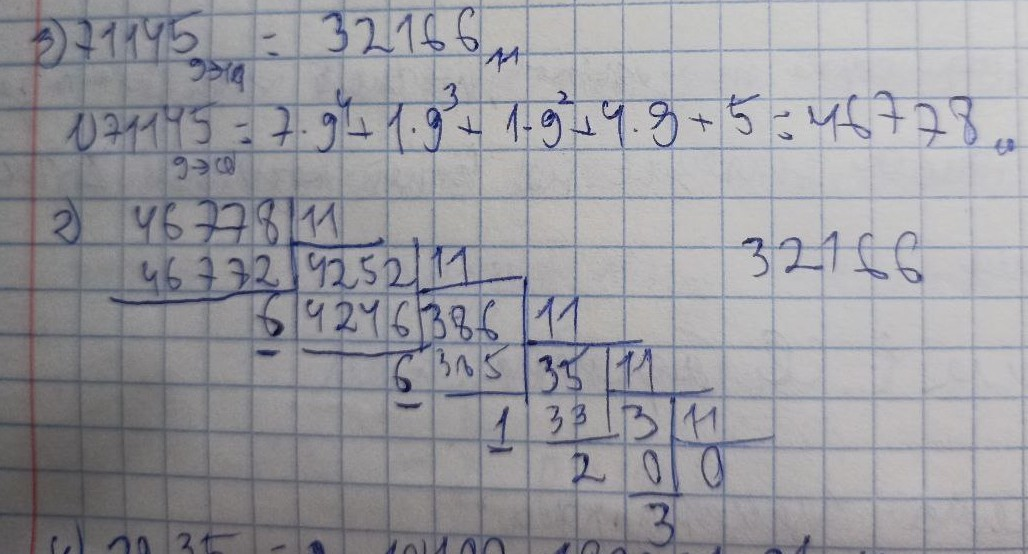 3) 71145 = 32166₁₁
9→11
1) 71145 = 7·9⁴ + 1·9³ + 1·9² + 4·9 + 5 = 46778₁₀
9→10
2) 46778 | 11
46772 | 4252 | 11
6 | 4246 | 386 | 11
6 385 | 35 | 11
1 33 | 3 | 11
2 0 | 0
3
32166